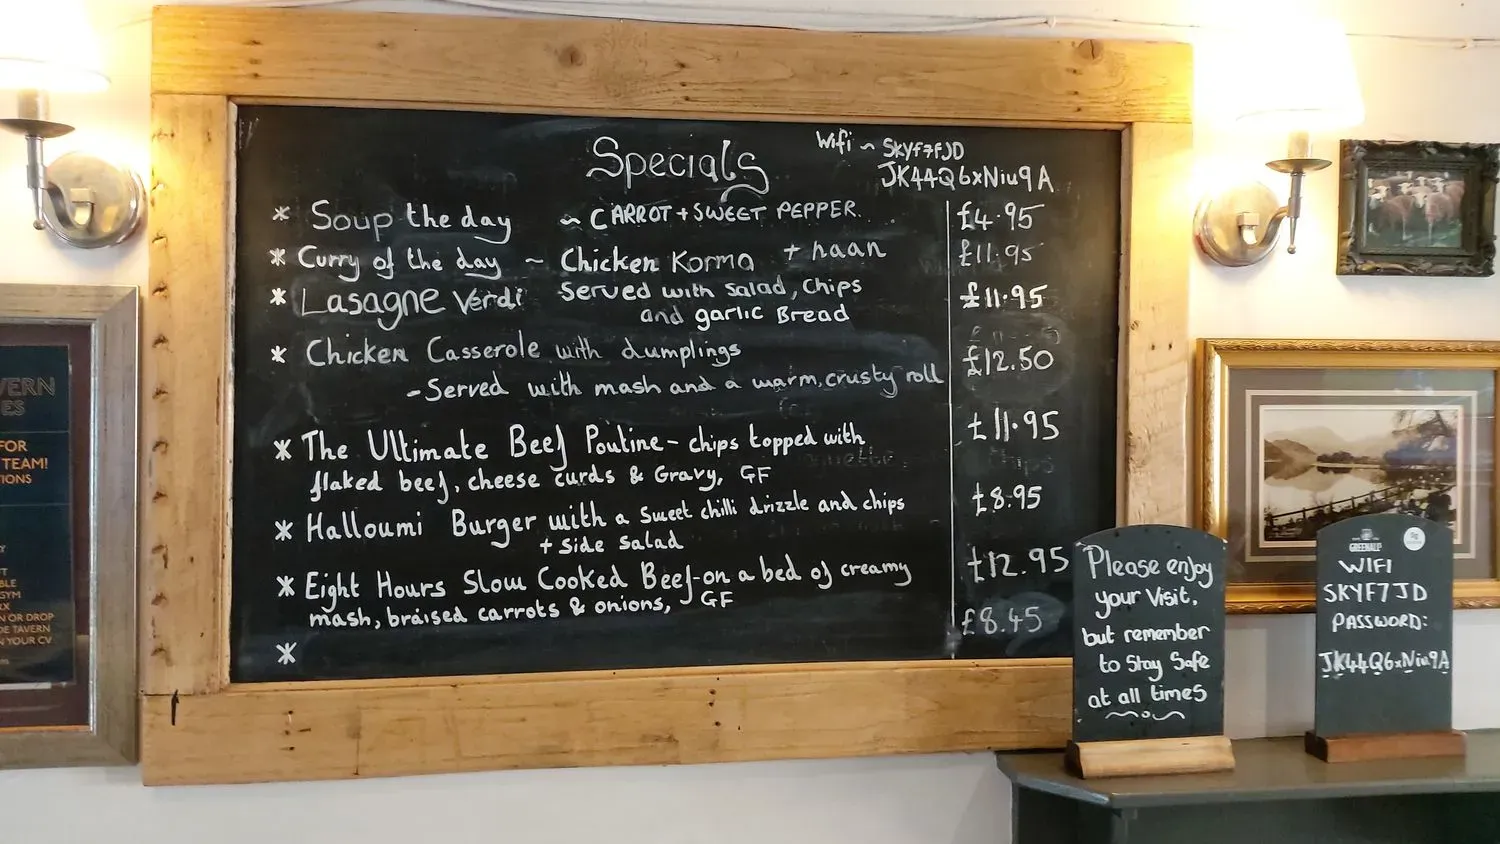 Specials
Wifi ~ SKYF7FJD
JK44Q6xNiu9A
* Soup the day ~ CARROT + SWEET PEPPER. £4.95
* Curry of the day ~ Chicken Korma + naan £11.95
* Lasagne Verdi Served with salad, chips £11.95
and garlic Bread
* Chicken Casserole with dumplings £12.50
- Served with mash and a warm, crusty roll
* The Ultimate Beef Poutine - chips topped with £11.95
flaked beef, cheese curds & Gravy, GF
* Halloumi Burger with a sweet chilli drizzle and chips £8.95
+ side salad
* Eight Hours Slow Cooked Beef - on a bed of creamy £12.95
mash, braised carrots & onions, GF
* £8.45
Please enjoy
your Visit,
but remember
to Stay Safe
at all times
WIFI
SKYF7JD
PASSWORD:
JK44Q6xNiu9A
VERN
ES
FOR
TEAM!
TIONS
SYM
N OR DROP
DE TAVERN
N YOUR CV